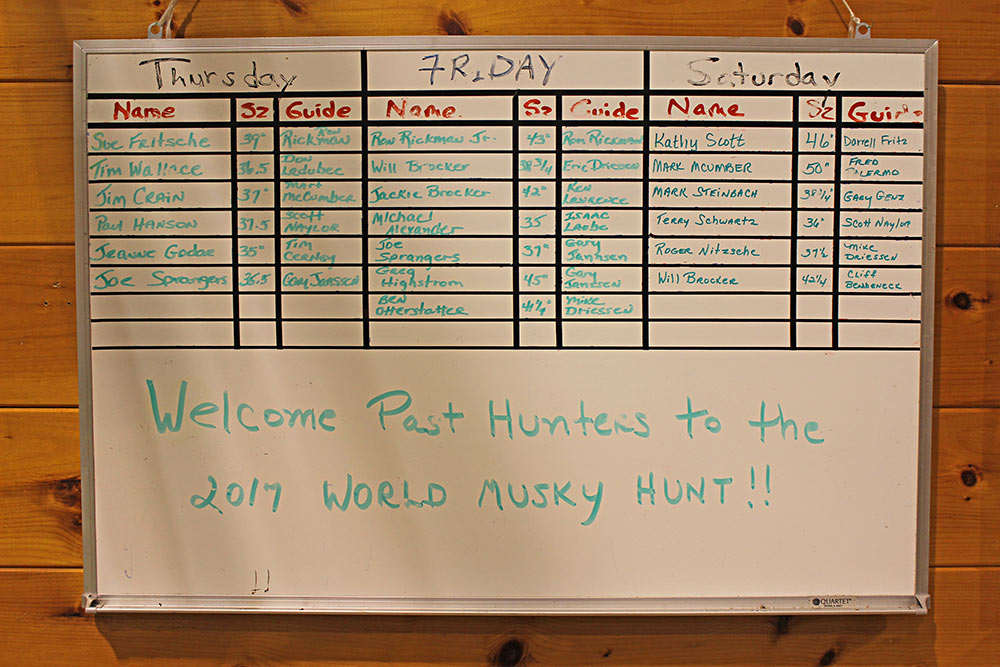 Thursday 7RiDAY Saturday
Name Sz Guide Name Sz Guide Name Sz Guide
Sue Fritsche 39" Ron Rickman Ron Rickman Jr. 43" Ron Rickman Kathy Scott 46" Darrell Fritz
Tim Wallace 36.5 Don Ladubec Will Brocker 38 3/4 Eric Driessen MARK MCUMBER 50" FRED PALERMO
Jim CRAIN 37" Mart McCumber Jackie Brocker 42" Ken Lawrence MARK STEINBACH 38 1/4" GARY GENZ
Paul HANSON 37.5 Scott NAYLOR Michael Alexander 35 ISAAC Terry Schwartz 36" Scott Naylor
Jeanne Godae 35" Tim Cerney Joe Sprangers 37" Gary Janssen ROGER Nitzsche 37 1/2 mike DRIESSEN
Joe Sprangers 36.5 Gary Janssen Greg Highstrom 45" Gary Janssen Will BROCKER 42 1/4 CLIFF BENDENECK
BEN Otterstatter 41 1/4 Mike Driessen
Welcome Past Hunters to the
2017 WORLD MUSKY HUNT!!
QUARTET